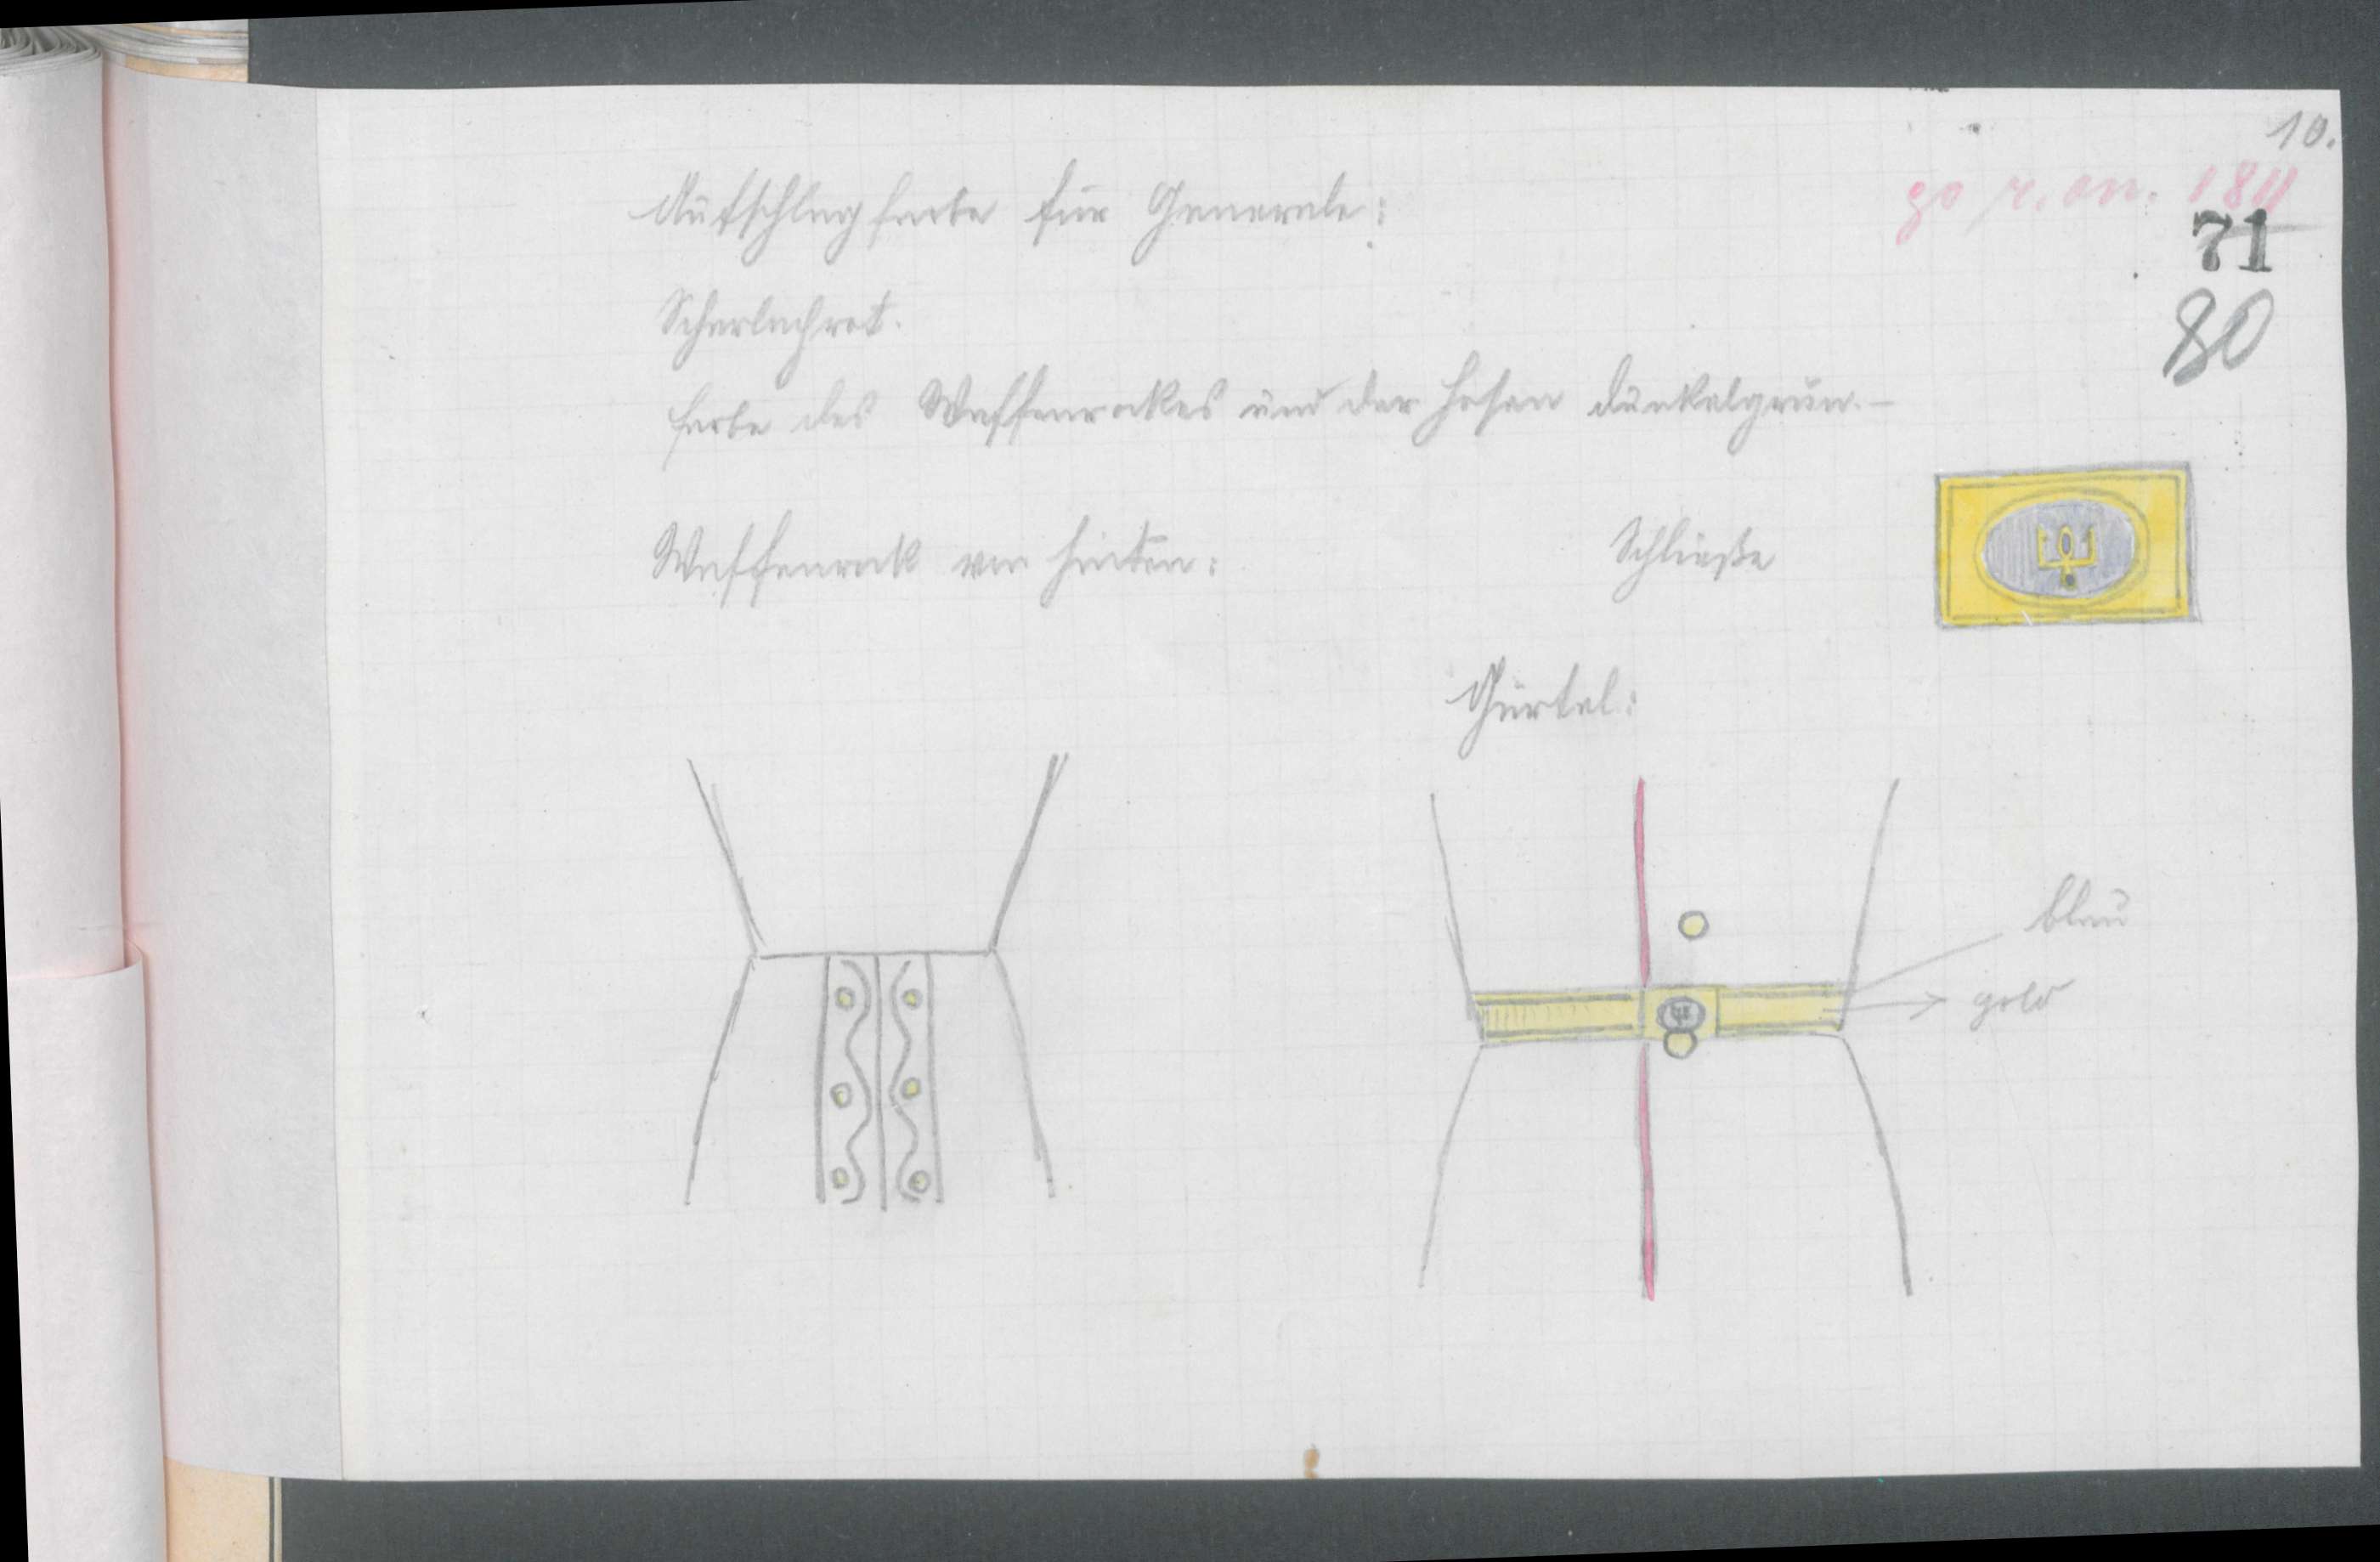 10.
до р. оп. 1811
71
80
Aufschlagfarbe für Generale:
Scharlachrot.
Farbe des Waffenrockes und der Hosen dunkelgrün.-
Waffenrock von hinten:
Schließe
Gürtel:
blau
gold